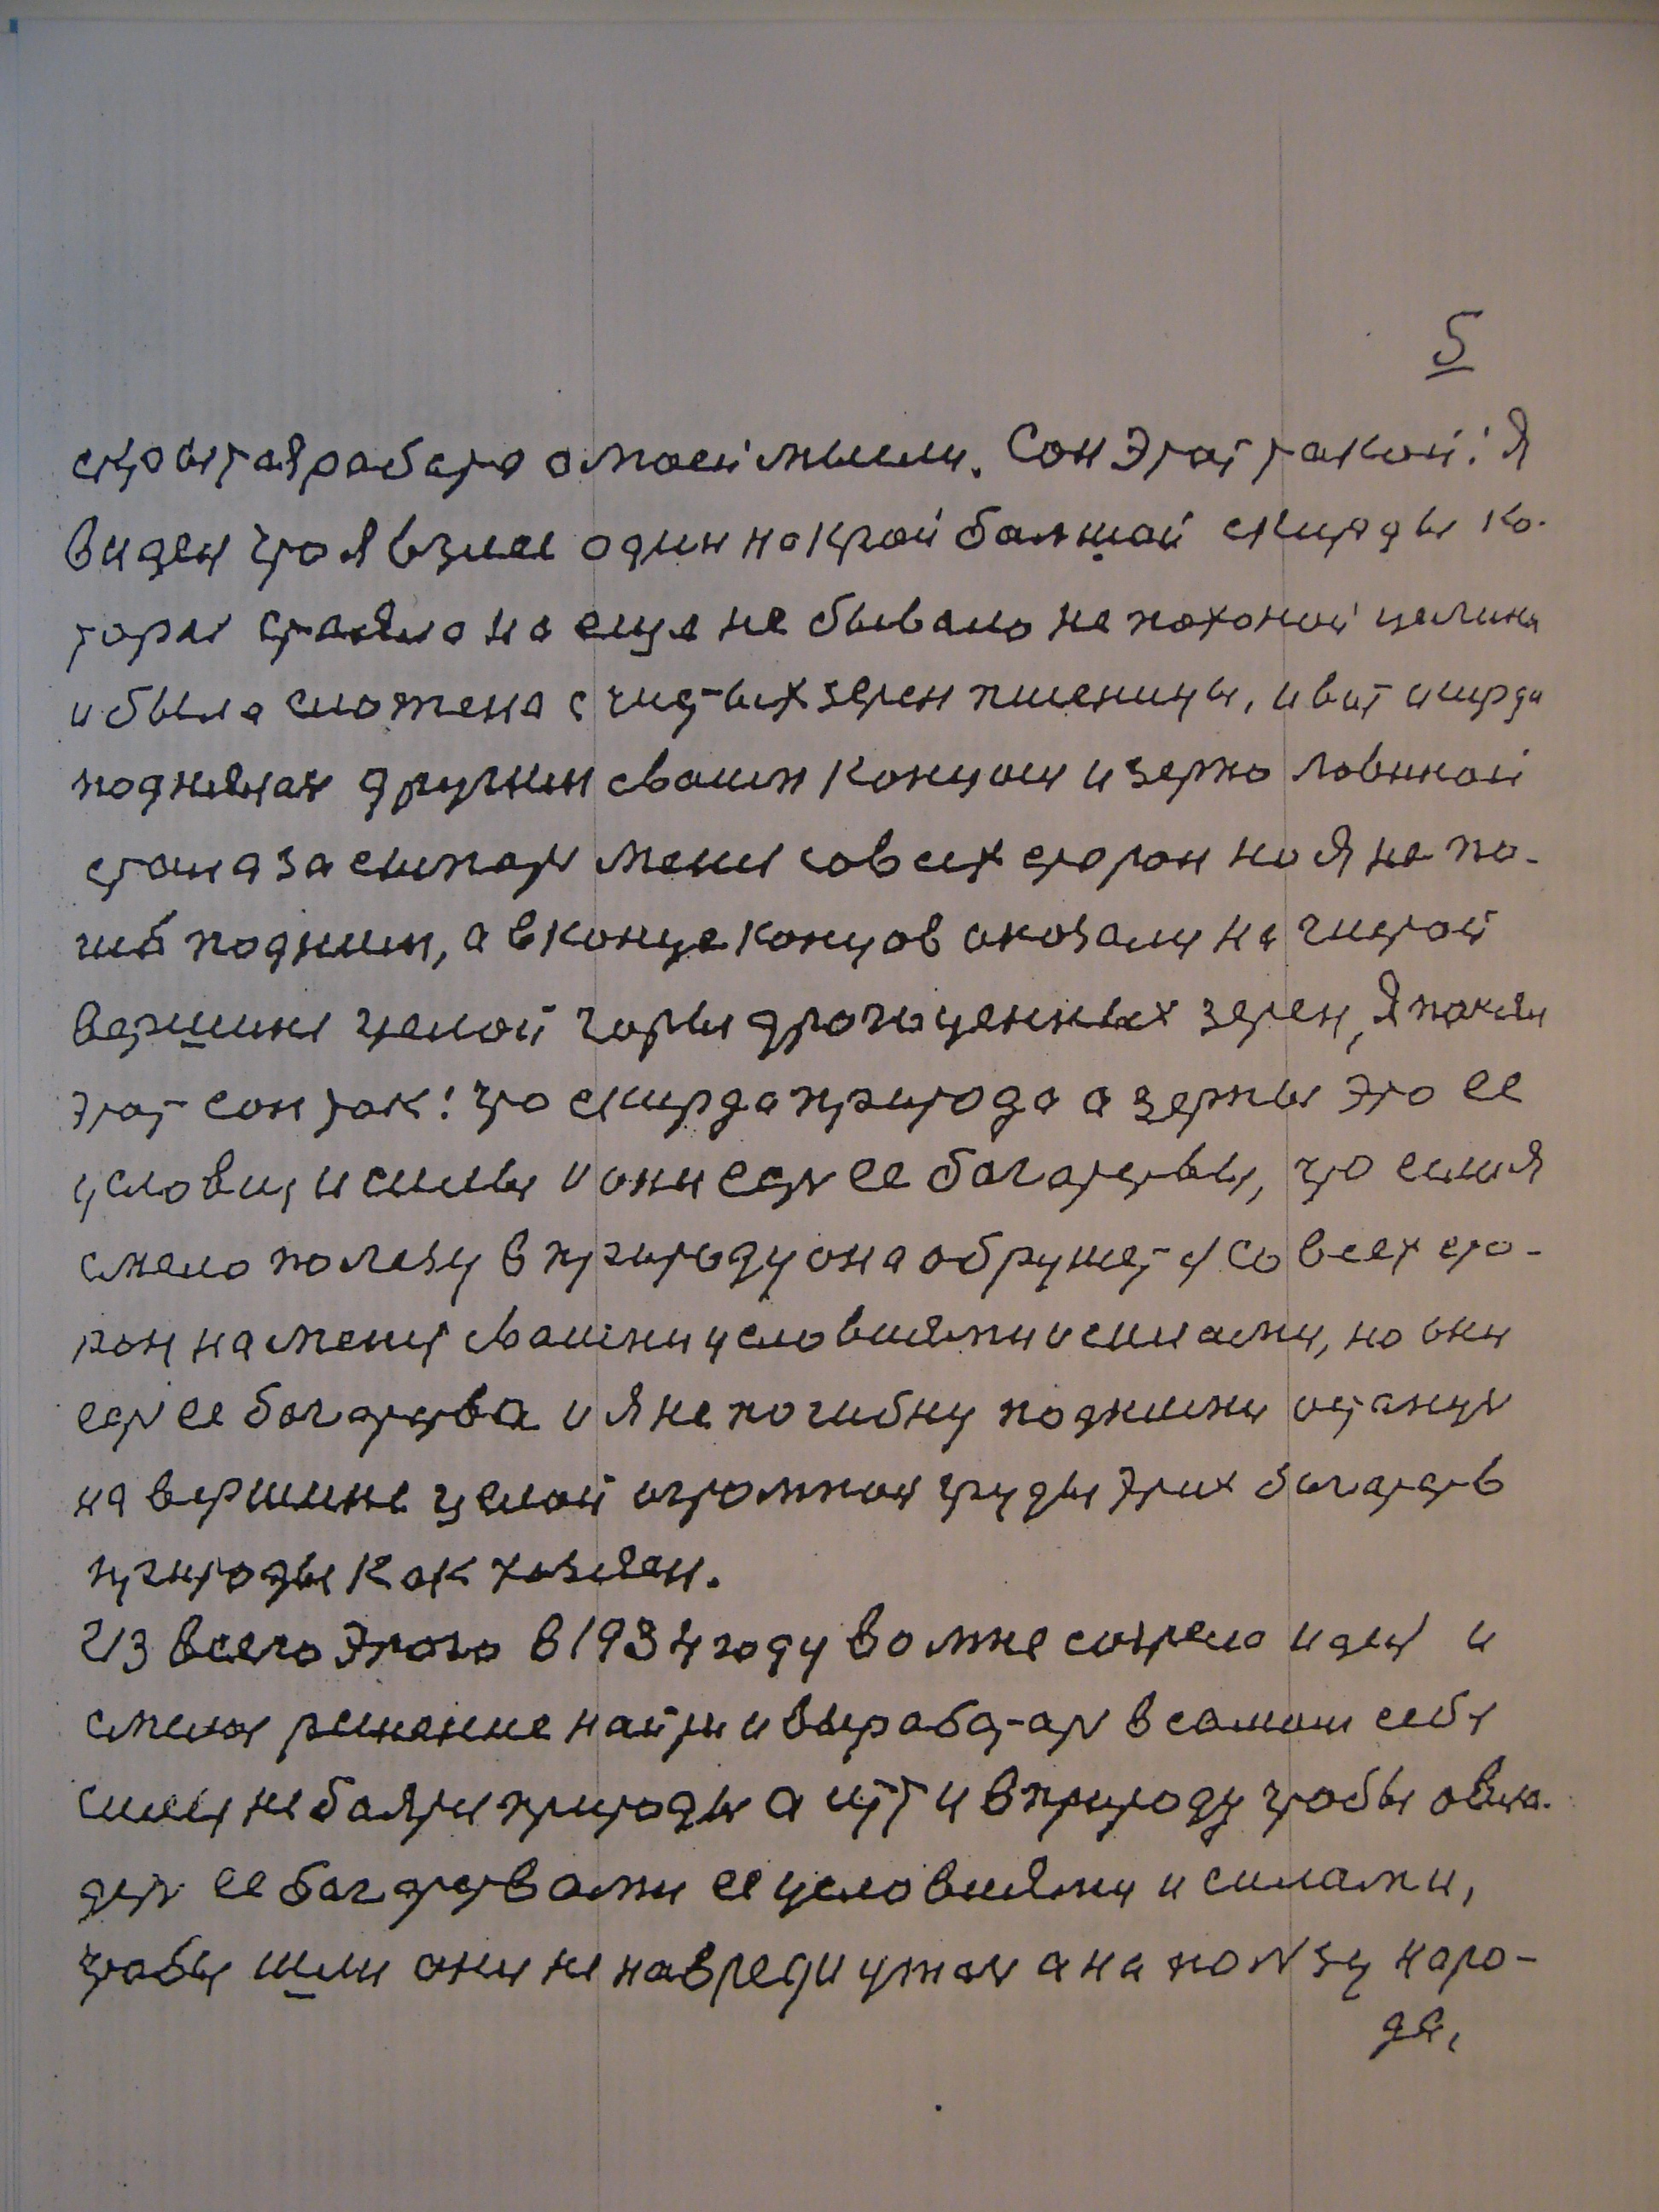 5
скрытая работа о моей мысли. Сон этот такой: я
видел что я взлез один на край большой скирды ко-
торая стаяла на еще не бывало не паханой целине
и была сложена с чистых зерен пшеницы, и вот скирда
поднялась другим своим концом и зерно лавиной
стала засыпать меня со всех сторон но я не по-
гиб под ним, а в конце концов оказался на чистой
вершине целой горы драгоценных зерен, я понял
этот сон так: что скирда природа а зерны это ее
условия и силы и они есть ее богатствы, что если я
смело полезу в природу она обрушется со всех сто-
рон на меня своими условиями и силами, но они
есть ее богатства и я не погибну под ними останусь
на вершине целой огромной груды этих богатств
природы как хозяен.
Из всего этого в 1934 году во мне созрела идея и
смелое решение найти и выработать в самом себе
силы не баяться природы а итти в природу чтобы овла-
деть ее богатствами ее условиями и силами,
чтобы шли они не на вред и ужас а на пользу наро-
да,